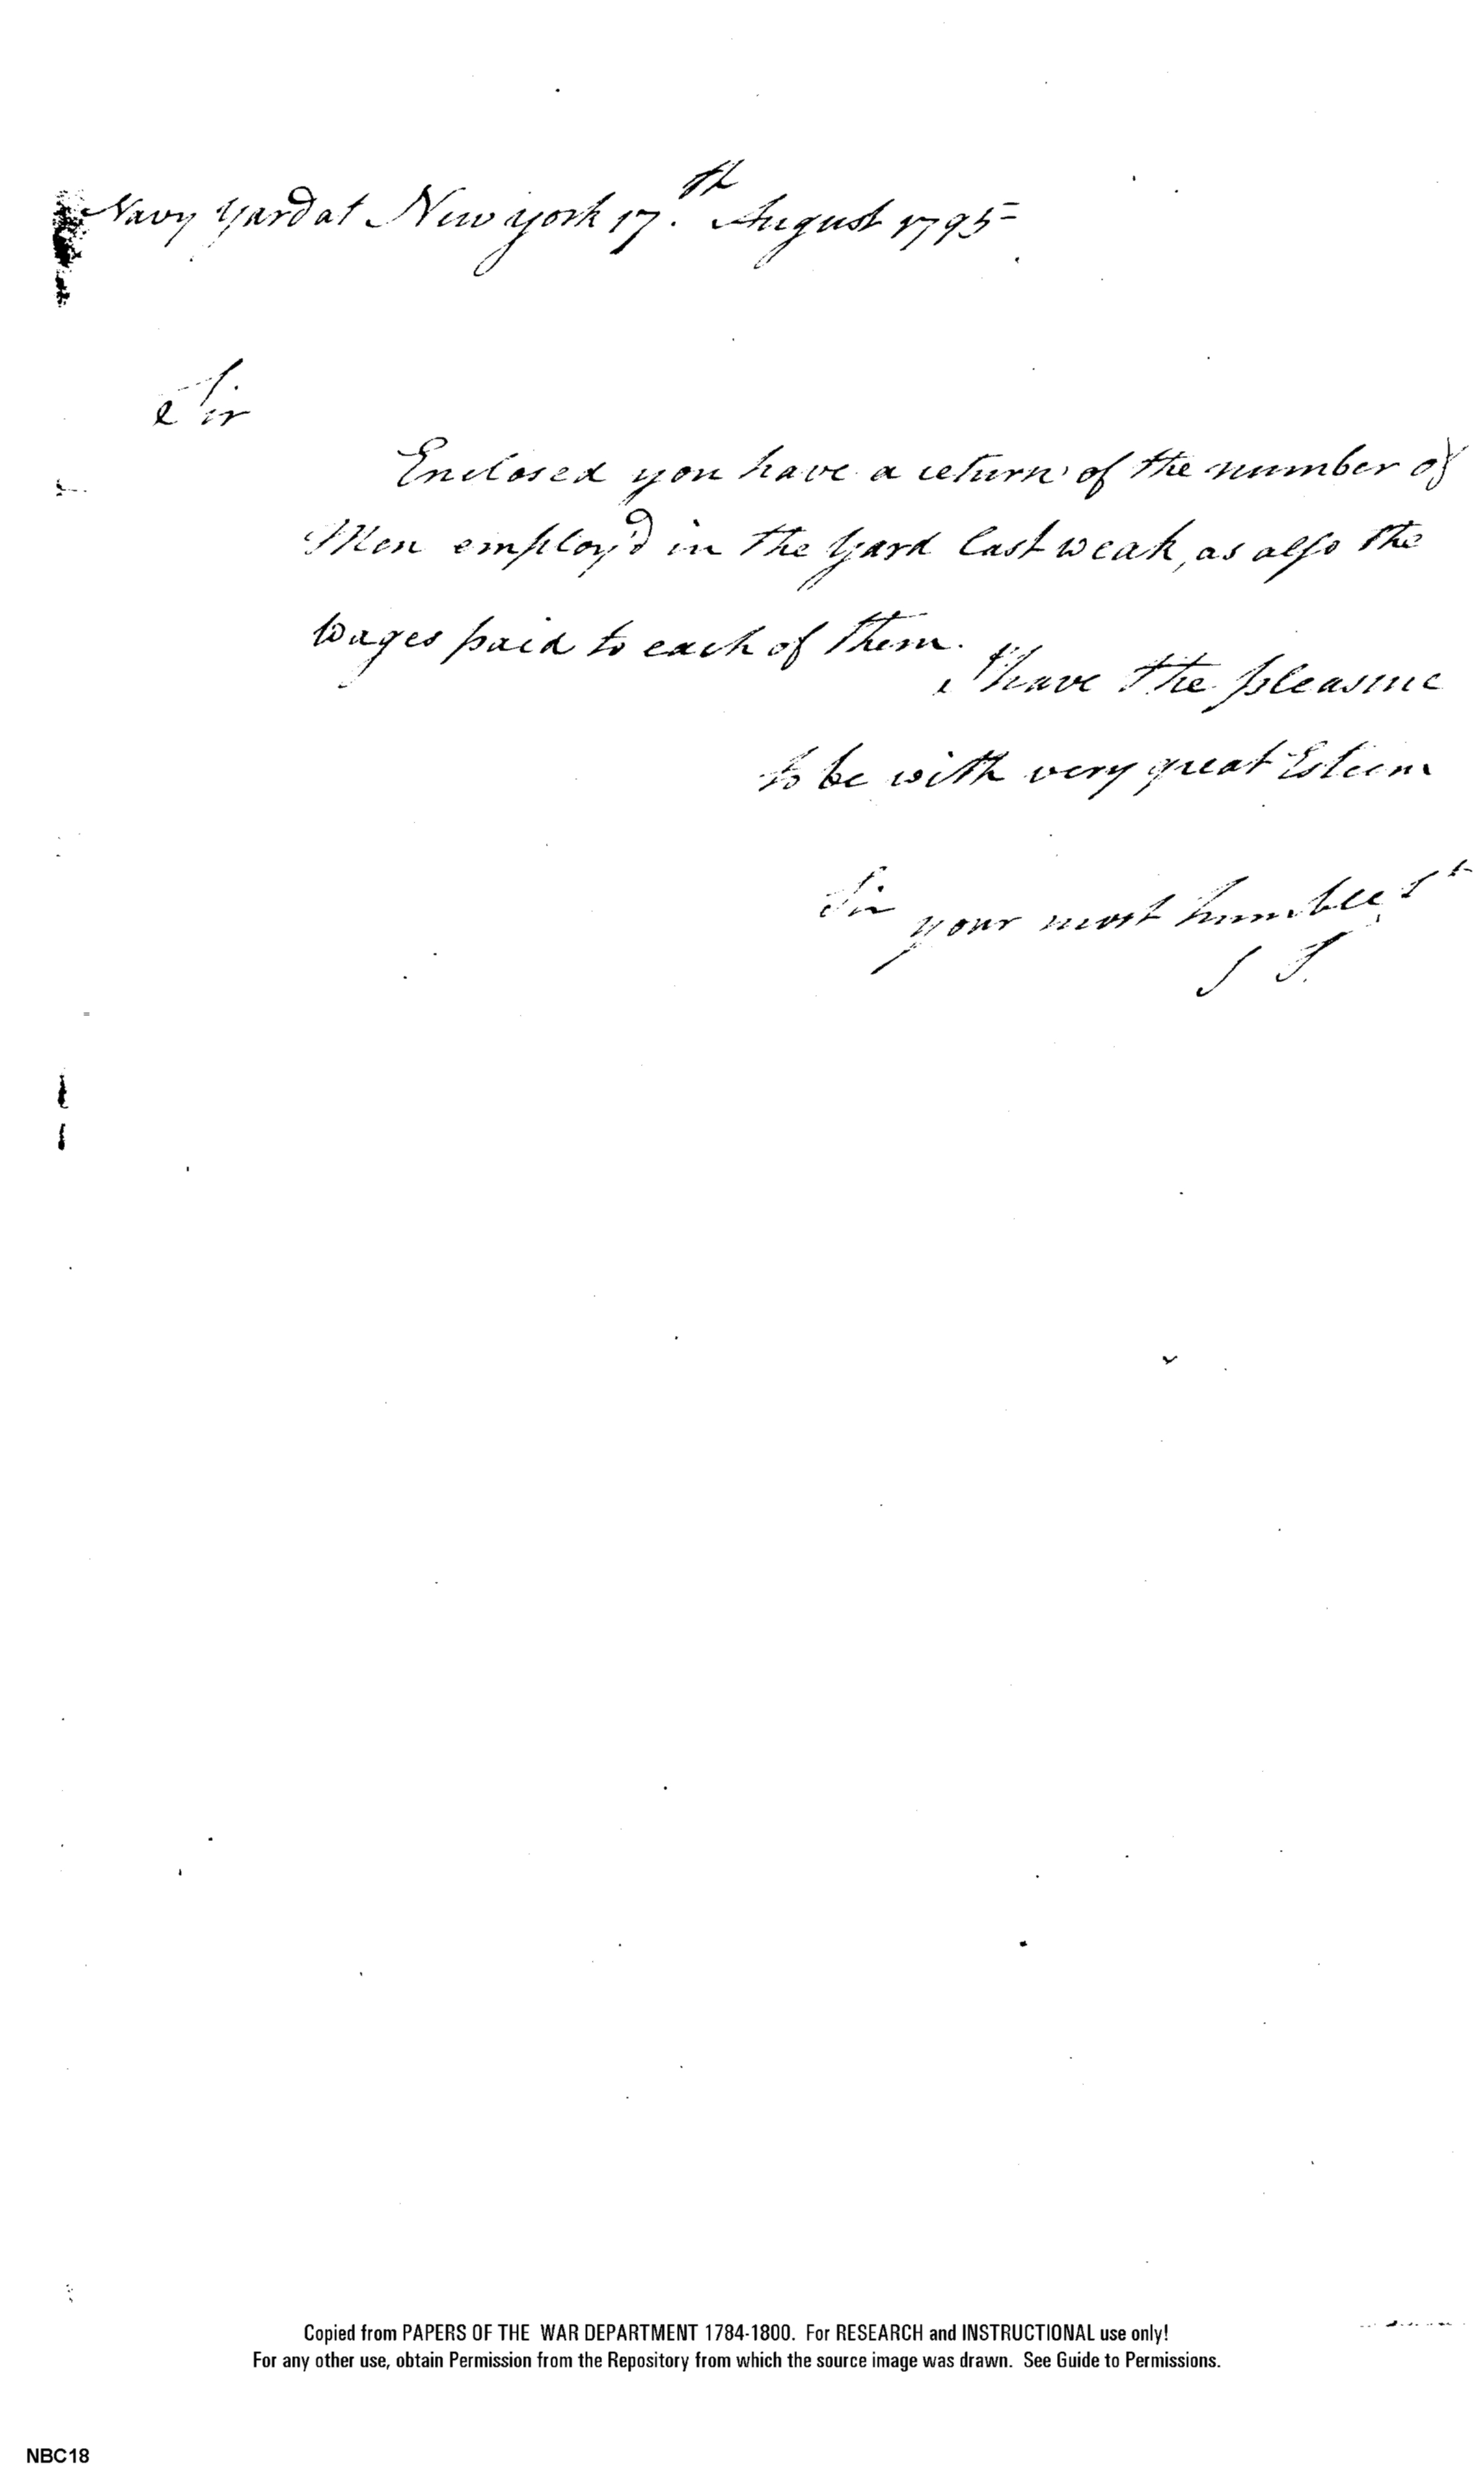 Navy Yard at New york 17.th August 1795=
Sir
Enclosed you have a return of the number of
Men employ'd in the Yard last weak, as also the
Wages paid to each of them.
I have the pleasure
to be with very great Esteem
Sir your most humble St
J T.
Copied from PAPERS OF THE WAR DEPARTMENT 1784-1800. For RESEARCH and INSTRUCTIONAL use only!
For any other use, obtain Permission from the Repository from which the source image was drawn. See Guide to Permissions.
NBC18